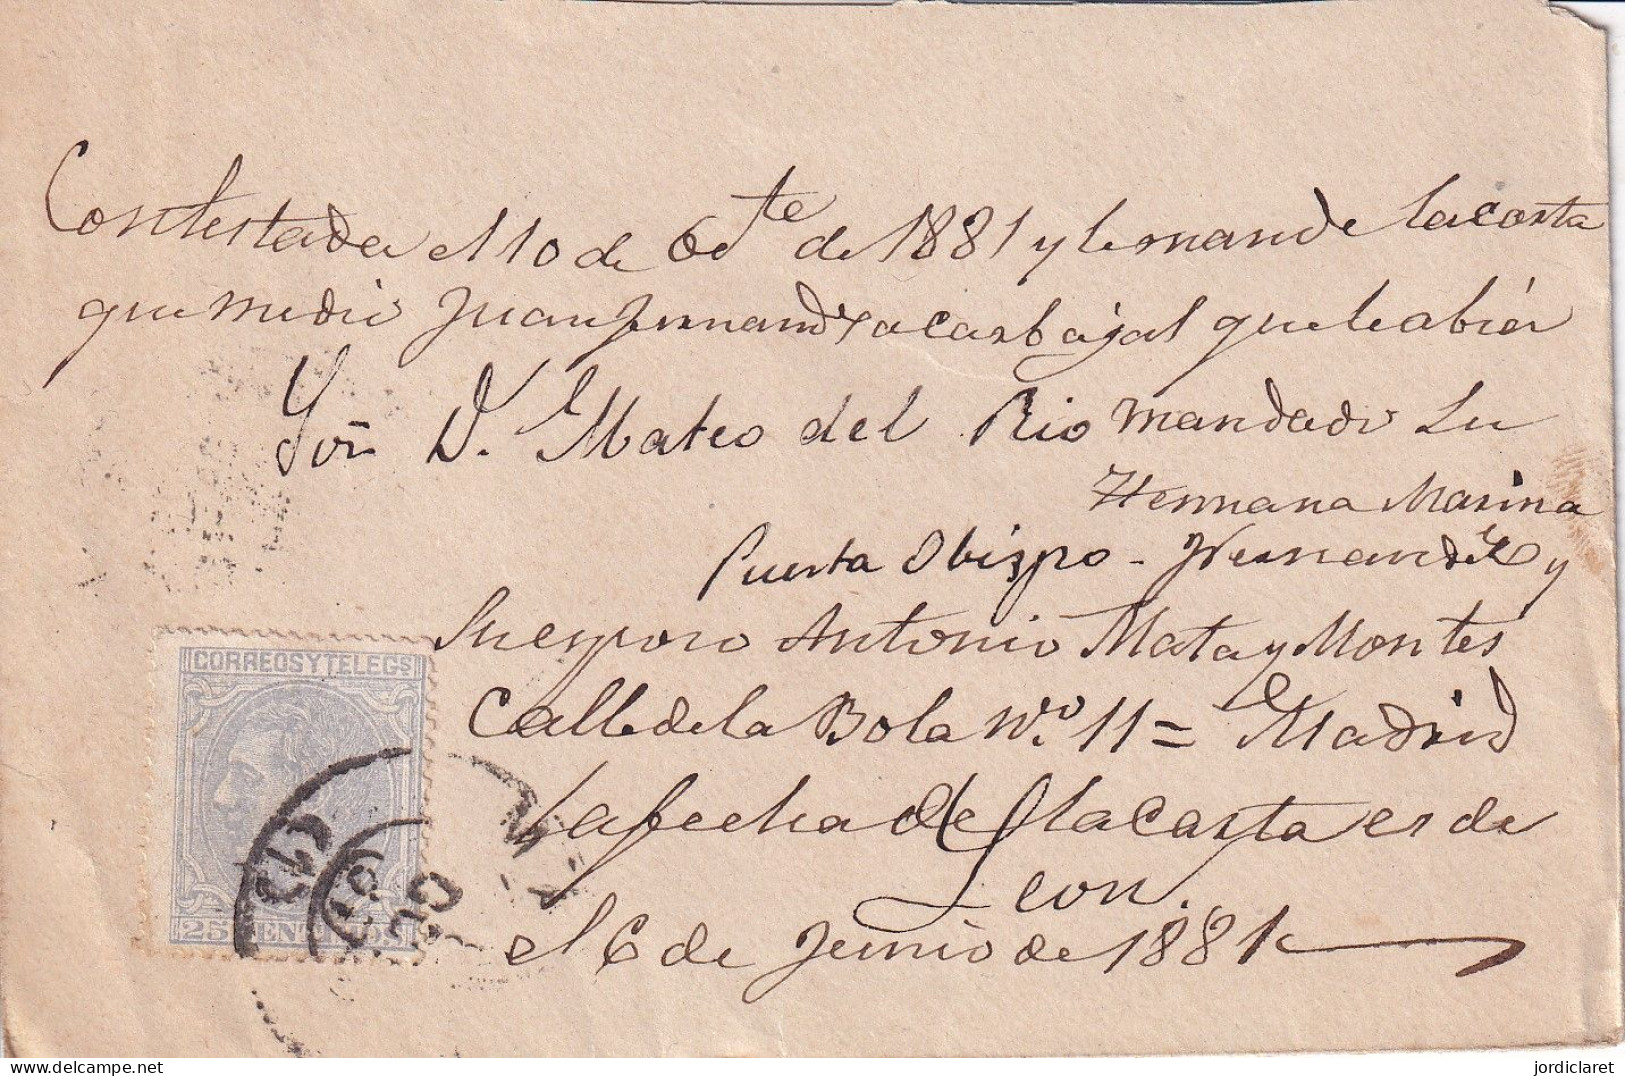 Contestada el 10 de de 1881 y le mande la carta
que me dio Juan Fernandez carbajal que le abia
Sor. D. Mateo del Rio mandado Su
Hermana Marina
Puerta Obispo - Hernandez y
Su esposo Antonio Mata y Montes
Calle de la Bola No. 11 = Madrid
la fecha de la carta es de
Leon.
el 6 de Junio de 1881
CORREOS Y TELEGS
25 CENTIMOS
jordiclaret